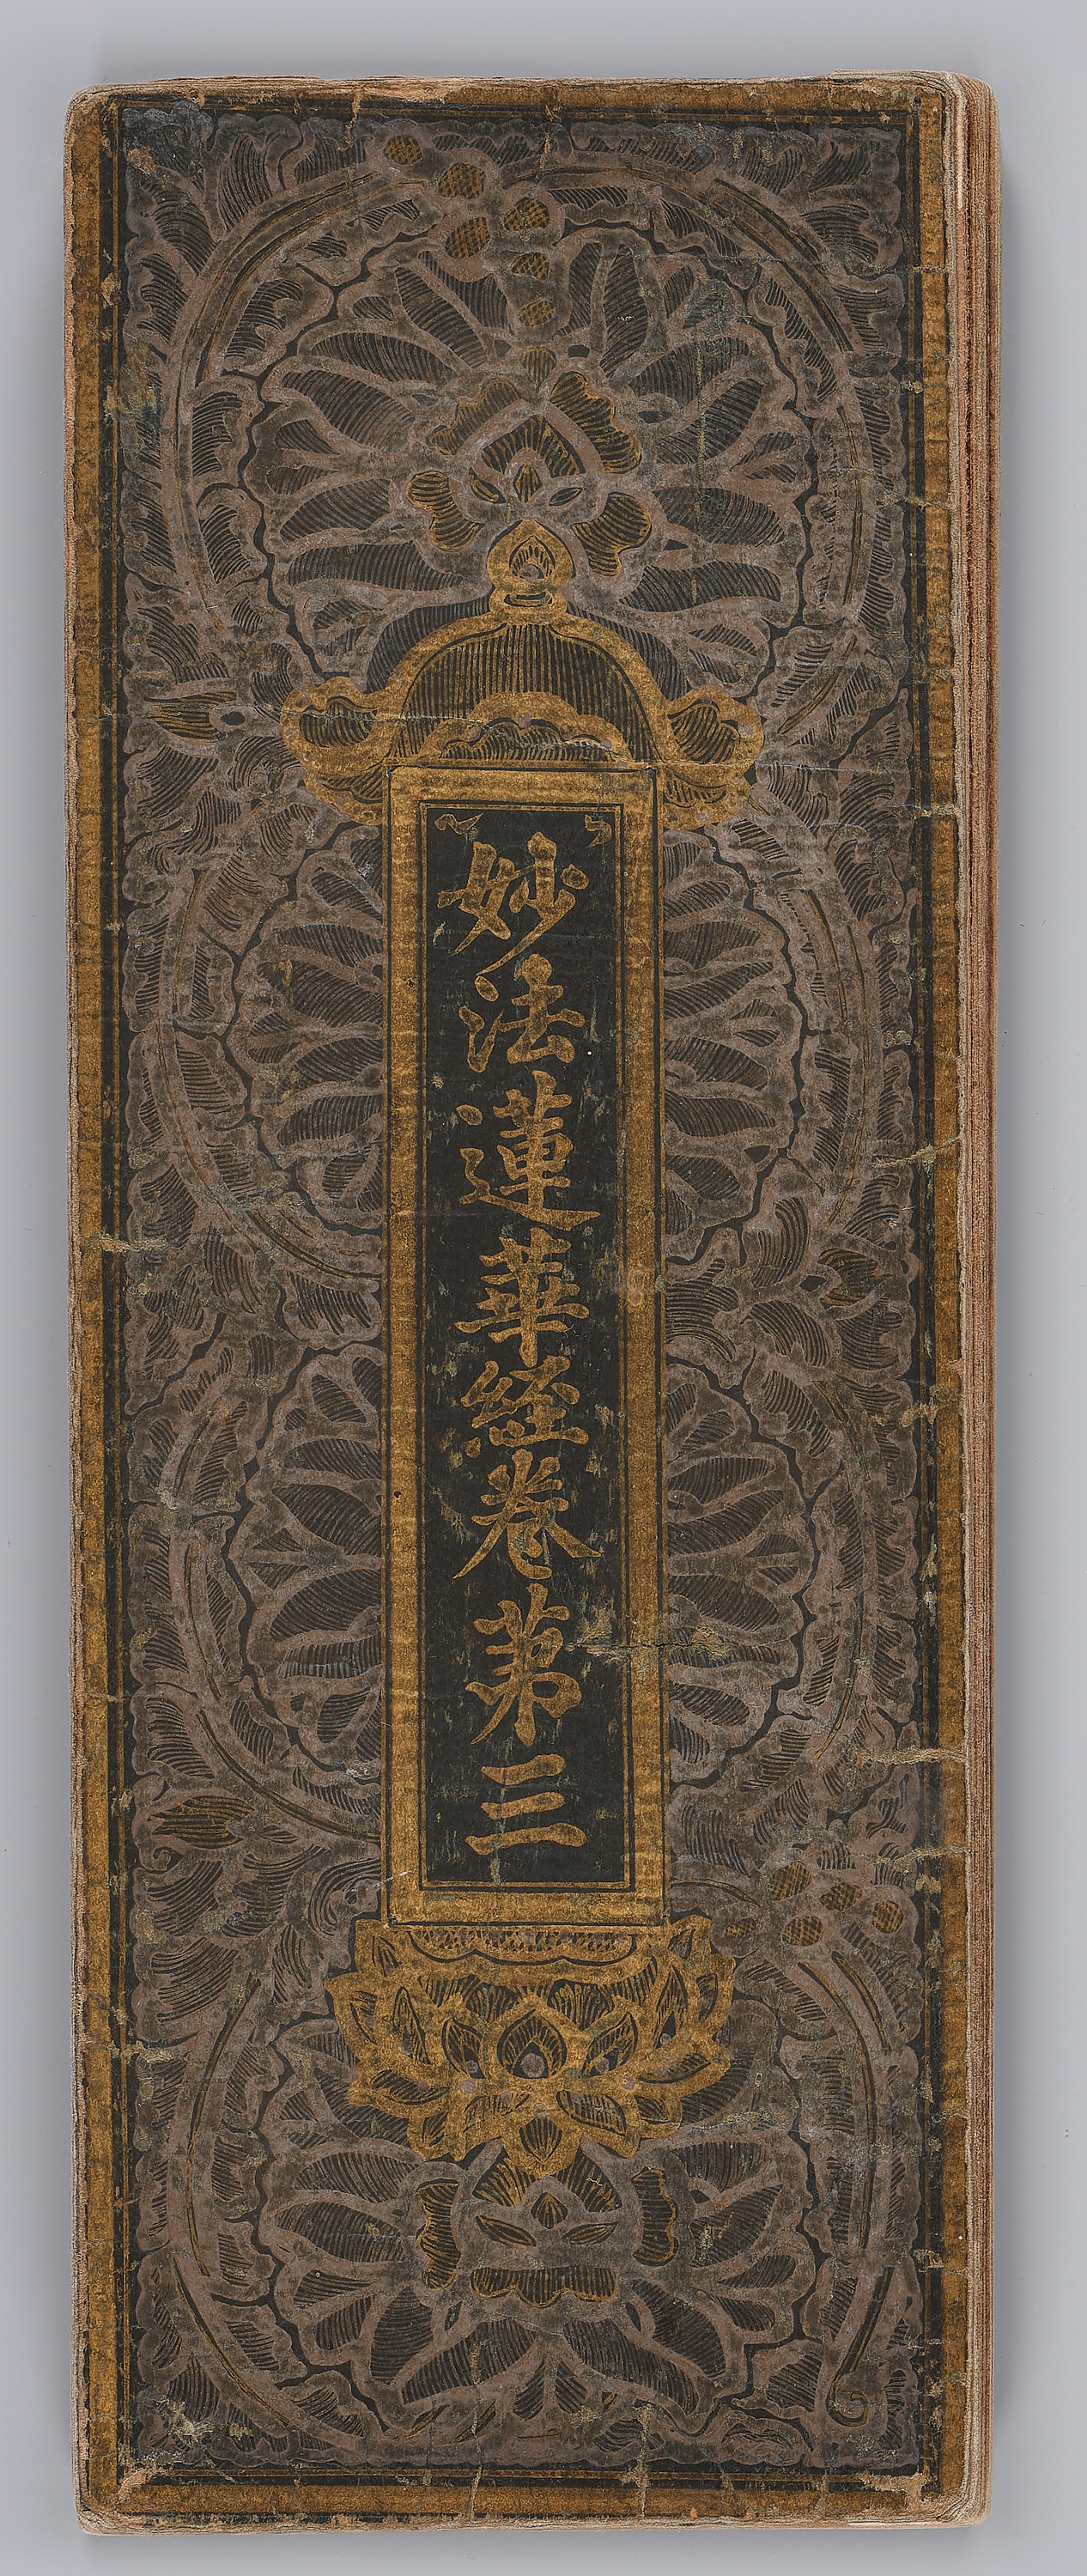 妙法蓮華經卷苐三